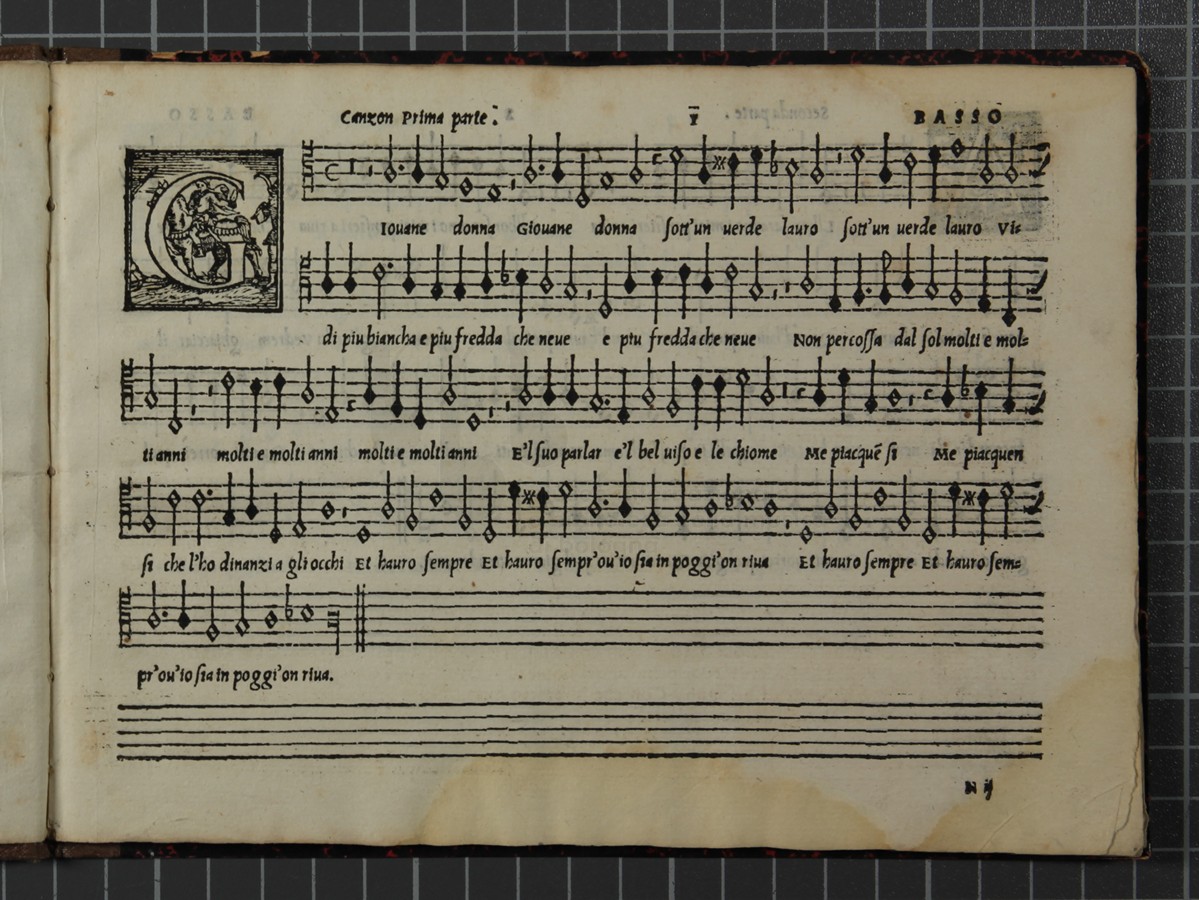 Canzon Prima parte. I BASSO
G
Iouane donna Giouane donna sott'un uerde lauro sott'un uerde lauro Vi=
di piu biancha e piu fredda che neue e piu fredda che neue Non percossa dal sol molti e mol=
ti anni molti e molti anni molti e molti anni E'l suo parlar e'l bel uiso e le chiome Me piacquẽ si Me piacquen
si che l'ho dinanzi a gli occhi Et hauro sempre Et hauro sempr'ou'io sia in poggi'on riua Et hauro sempre Et hauro sem=
pr'ou'io sia in poggi'on riua.
N ij